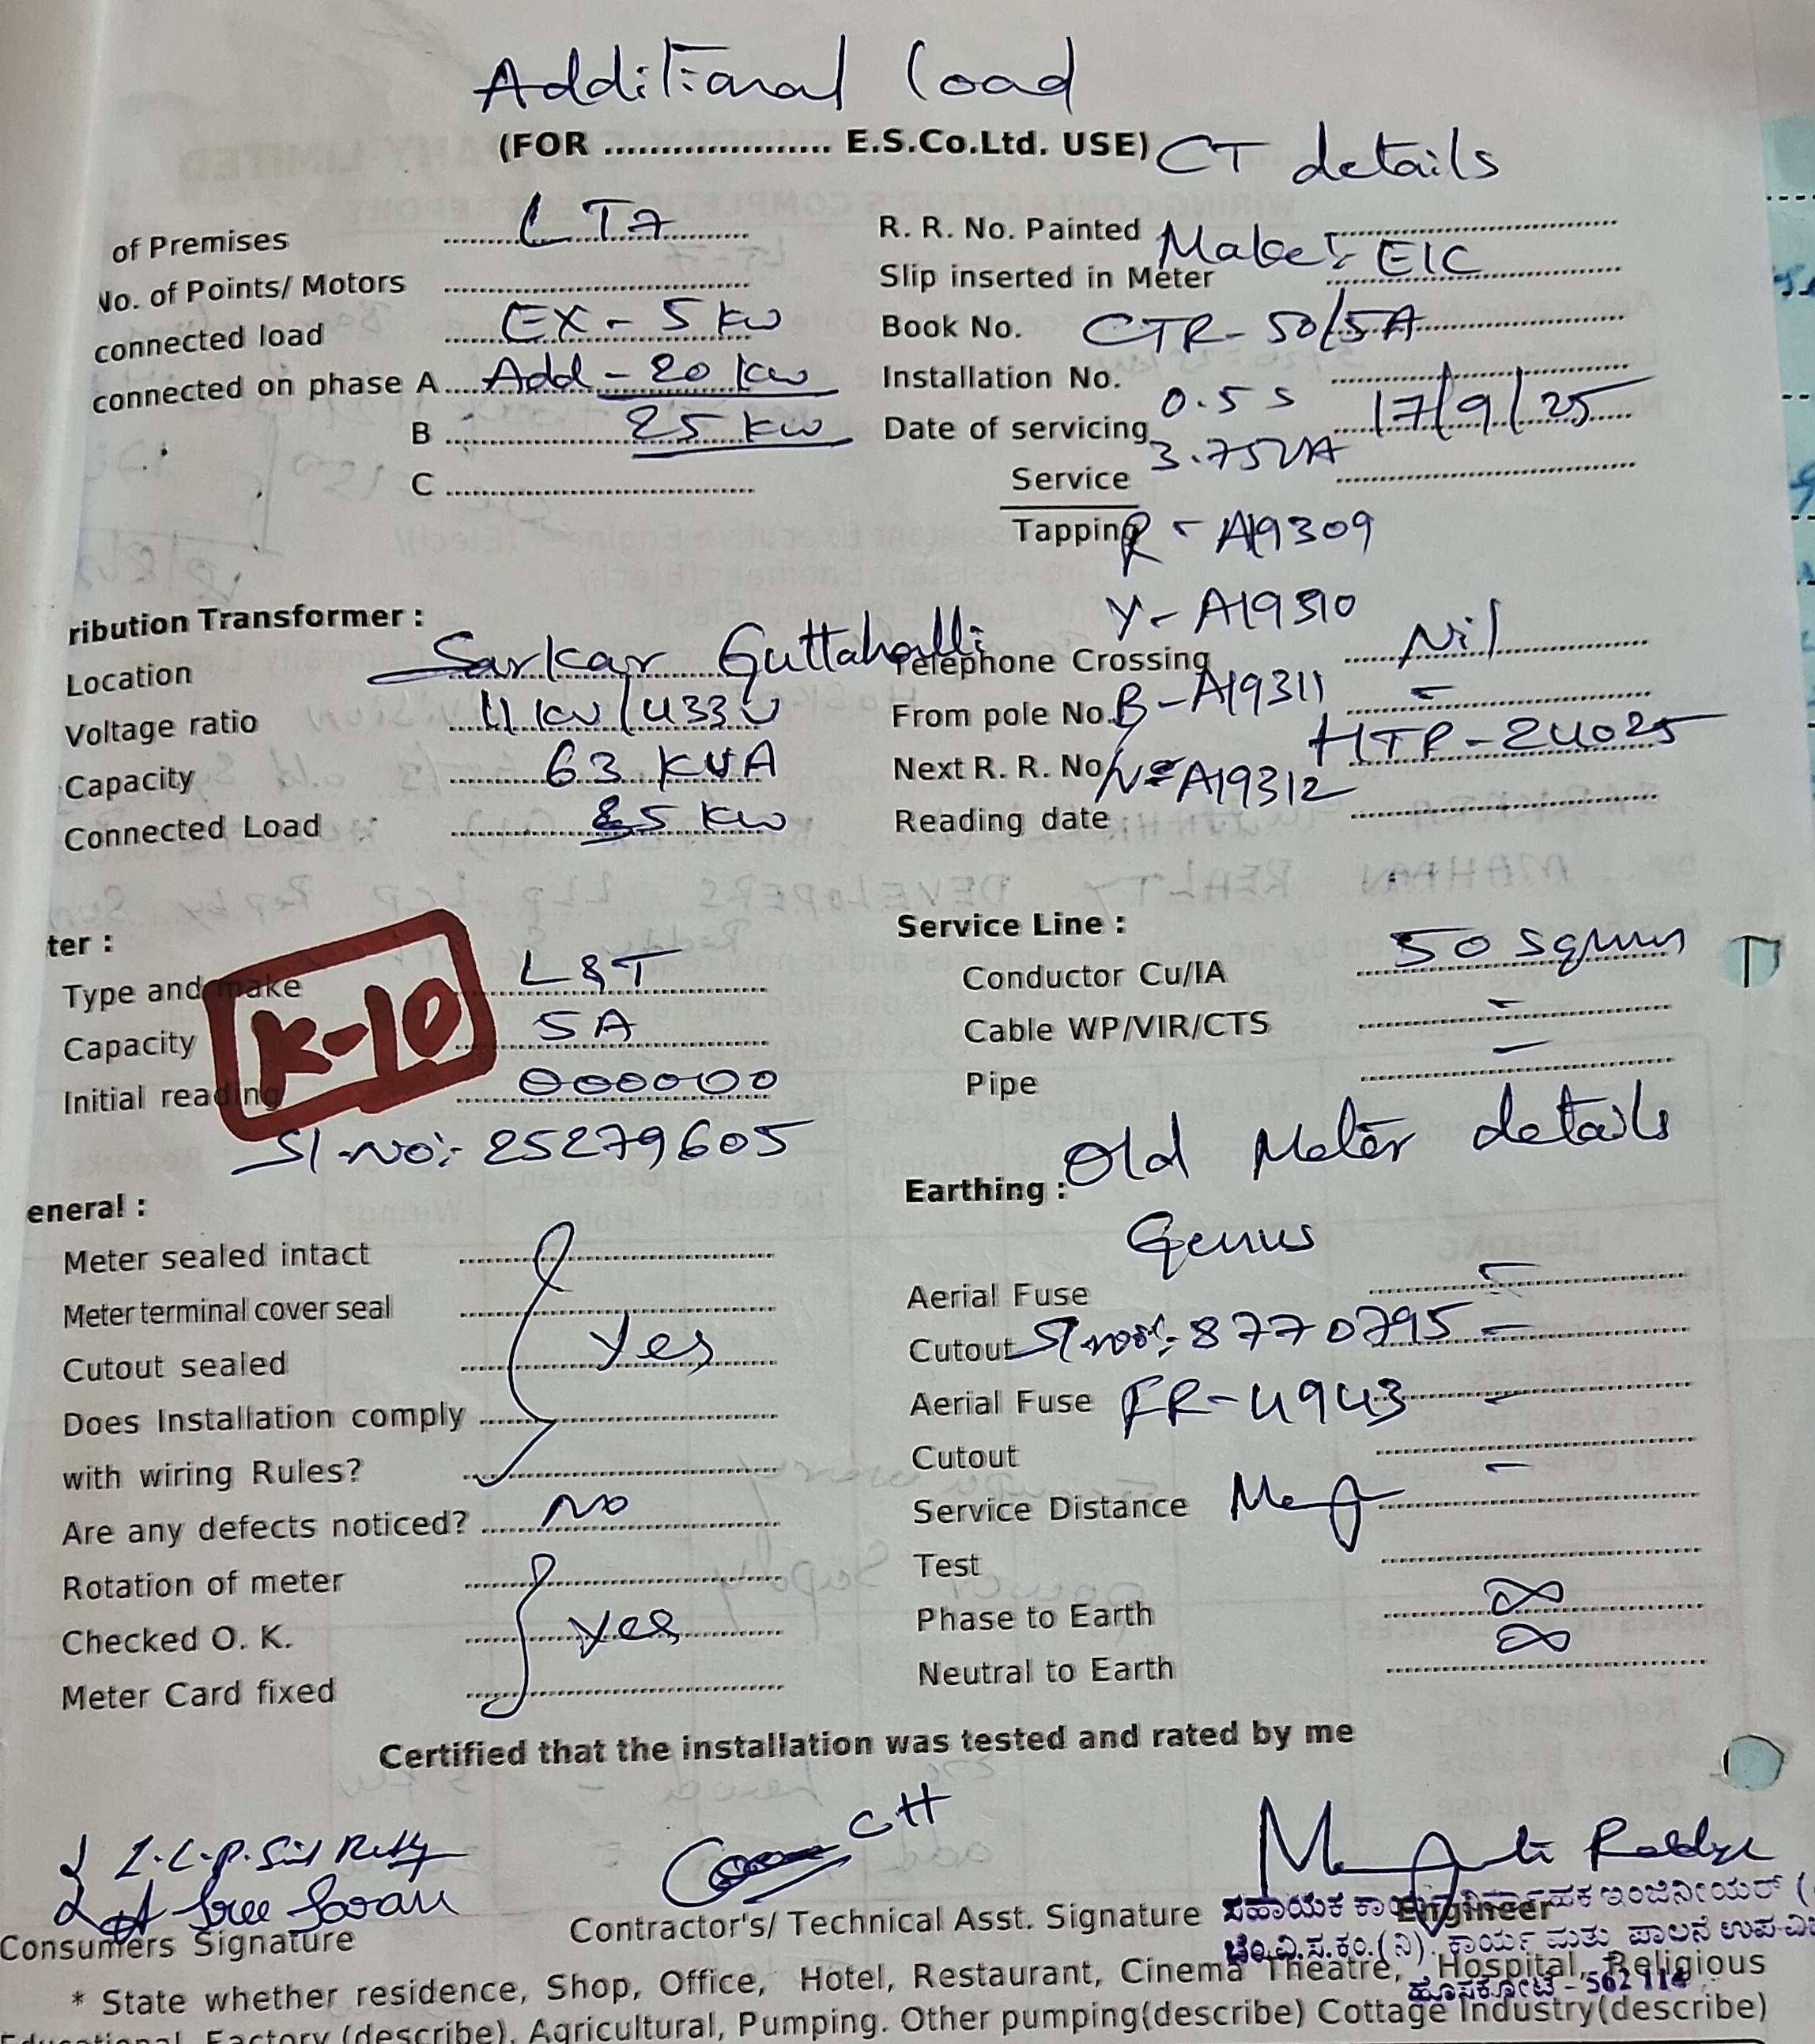 Additional load
(FOR .................... E.S.Co.Ltd. USE) CT details
of Premises LT7
R. R. No. Painted Make:- EIC
No. of Points/ Motors
Slip inserted in Meter
connected load EX - 5 kw
Book No. CTR - 50/5A
connected on phase A Add - 20 kw
Installation No. 0.5 S
B 25 kw
Date of servicing 17/9/25
3.75VA
C
Service
Tapping R - A19309
Y - A19310
ribution Transformer :
Location Sarkar Guttahalli
Telephone Crossing Nil
Voltage ratio 11 kv/433 v
From pole No. B - A19311 -
Capacity 63 KVA
Next R. R. No. N - A19312 HTP-24025
Connected Load 25 kw
Reading date
ter :
Service Line :
Type and make L&T
Conductor Cu/IA 50 sqmm
Capacity 5A
Cable WP/VIR/CTS -
Initial reading 000000
Pipe -
K-10
Sl.No:- 25279605
Old Meter details
eneral :
Earthing :
Genus
Meter sealed intact
Aerial Fuse -
Meter terminal cover seal
Cutout Sl no:- 8770795 -
Cutout sealed Yes
Aerial Fuse FR-4943 -
Does Installation comply
Cutout -
with wiring Rules?
Service Distance
Are any defects noticed? No
Test
Rotation of meter
Phase to Earth ∞
Checked O. K. Yes
Neutral to Earth ∞
Meter Card fixed
Certified that the installation was tested and rated by me
CH
Consumers Signature
Contractor's/ Technical Asst. Signature
Engineer
ಸಹಾಯಕ ಕಾರ್ಯನಿರ್ವಾಹಕ ಇಂಜಿನೀಯರ್ (
ಬೆಂ.ವಿ.ಸ.ಕಂ.(ನಿ). ಕಾರ್ಯ ಮತ್ತು ಪಾಲನೆ ಉಪ-ವಿ
ಹೊಸಕೋಟೆ - 562 114
* State whether residence, Shop, Office, Hotel, Restaurant, Cinema Theatre, Hospital, Religious
Educational, Factory (describe), Agricultural, Pumping. Other pumping(describe) Cottage Industry(describe)